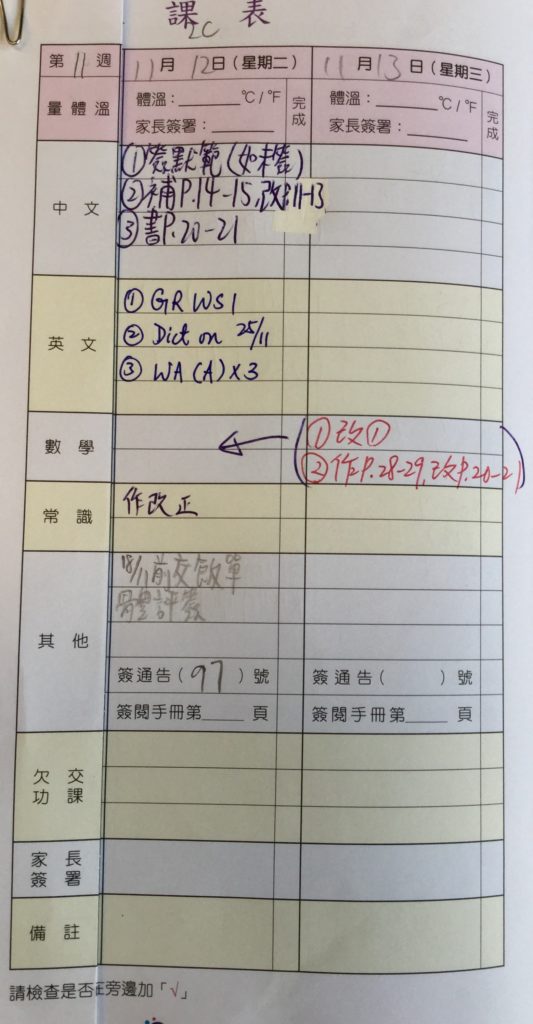 課 表
2C
第 11 週 11 月 12 日(星期二) 11 月 13 日(星期三)
量體溫 體溫:______ ℃/℉ 完成 體溫:______ ℃/℉ 完成
家長簽署:______ 家長簽署:______
中文 ①簽默範(如未簽)
②補P.14-15,改P.11-13
③書P.20-21
英文 ① GR WS1
② Dict on 25/11
③ WA (A) x 3
數學 ← (①改①
②作P.28-29,改P.20-21)
常識 作改正
其他 18/11前交飯單
體評簽
簽通告( 97 )號 簽通告( )號
簽閱手冊第____頁 簽閱手冊第____頁
欠交功課
家長簽署
備註
請檢查是否正旁邊加「√」